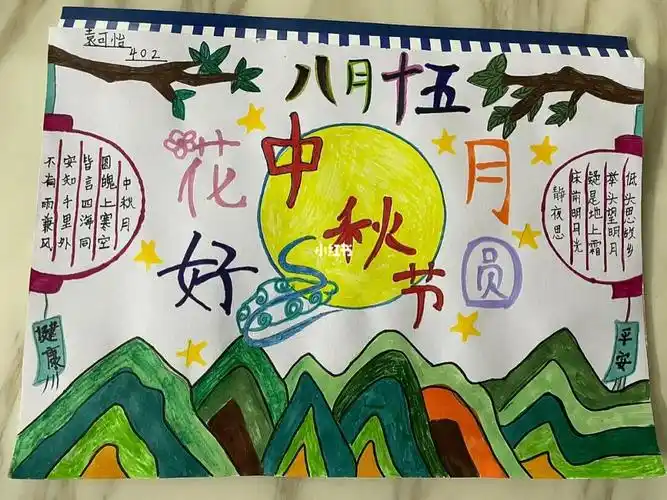 袁可怡
402
八月十五
花好
月圆
中秋节
小红书
中秋月
圆魄上寒空
皆言四海同
安知千里外
不有雨兼风
健康
静夜思
床前明月光
疑是地上霜
举头望明月
低头思故乡
平安